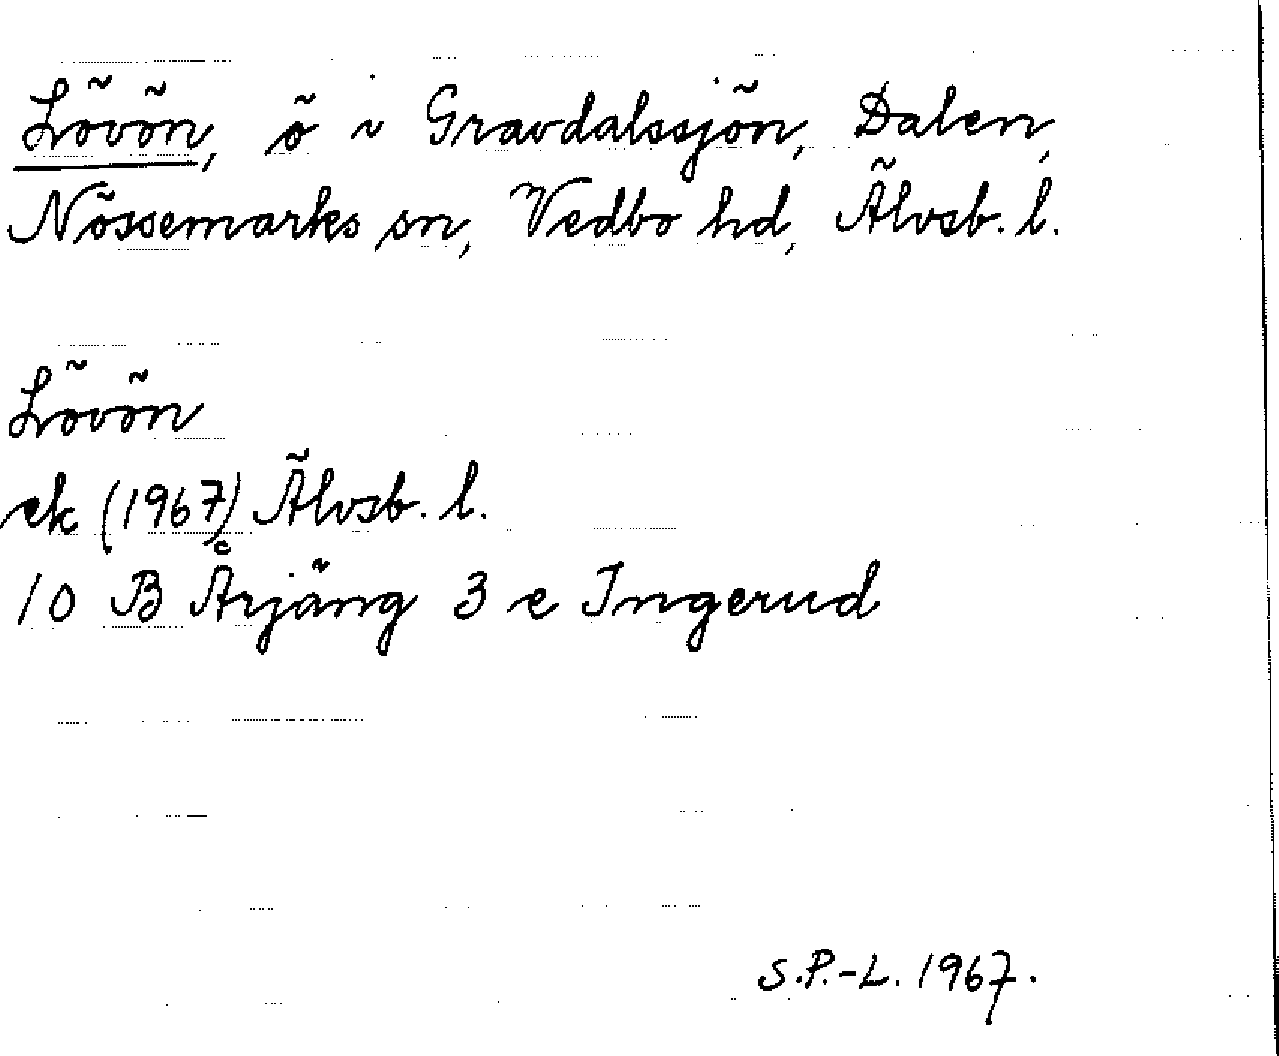 Lövön, ö i Gravdalssjön, Dalen,
Nössemarks sn, Vedbo hd, Älvsb. l.
Lövön
ek (1967) Älvsb. l.
10 B Årjäng 3 e Ingerud
S.P.-L. 1967.